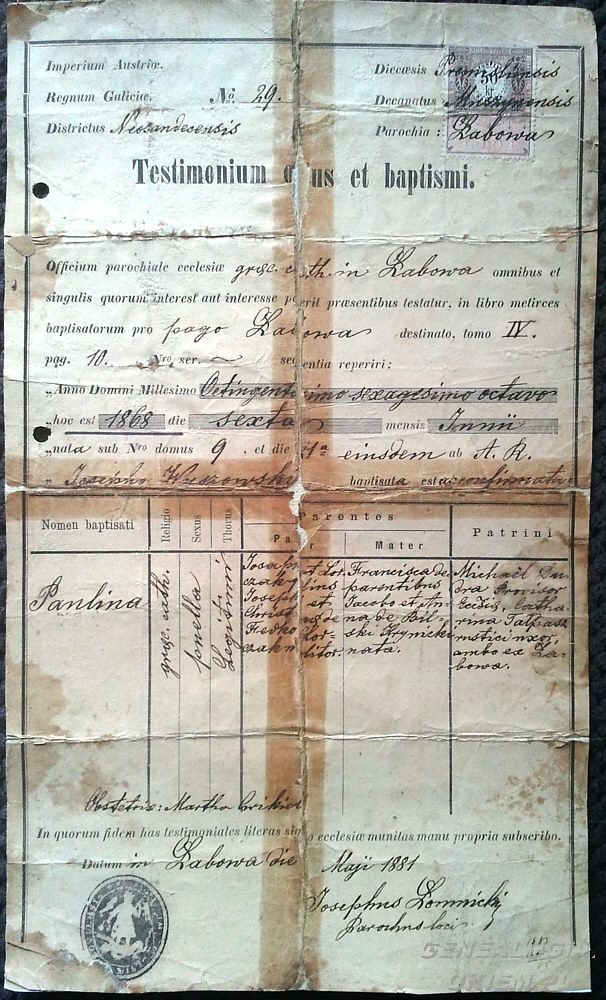 Imperium Austriæ.
Regnum Galiciæ. No. 29.
Districtus Neosandecensis
Diœcesis Premisliensis
Decanatus Muszynensis
Parochia: Łabowa
50
kr
Testimonium us et baptismi.
Officium parochiale ecclesiæ græc. cath. in Łabowa omnibus et
singulis quorum interest aut interesse poterit præsentibus testatur, in libro metirces
baptisatorum pro pago Łabowa destinato, tomo IV.
pag. 10. Nro ser. ~ sequentia reperiri:
„Anno Domini Millesimo Octingentesimo sexagesimo octavo
„hoc est 1868 die sexta mensis Junii
„nata sub Nro domus 9, et die eiusdem ab A. R.
„ Josepho Wysłowski baptisata est ac confirmata
Nomen baptisati
Religio
Sexus
Thorus
Parentes
Pater
Mater
Patrini
Paulina
græc. cath.
puella
Legitimi
Francisca de
parentibus
Jacobo et An-
na de Bil-
ski Krynicki
nata.
Michaël Du-
bra Provisor
Eccliæ, Catha-
rina
rustici uxor,
ambo ex Ła-
bowa.
Obstetrix: Martha
In quorum fidem has testimoniales literas sigillo ecclesiæ munitas manu propria subscribo.
Datum in Łabowa die Maji 1881
Josephus Łomnicki
Parochus loci.